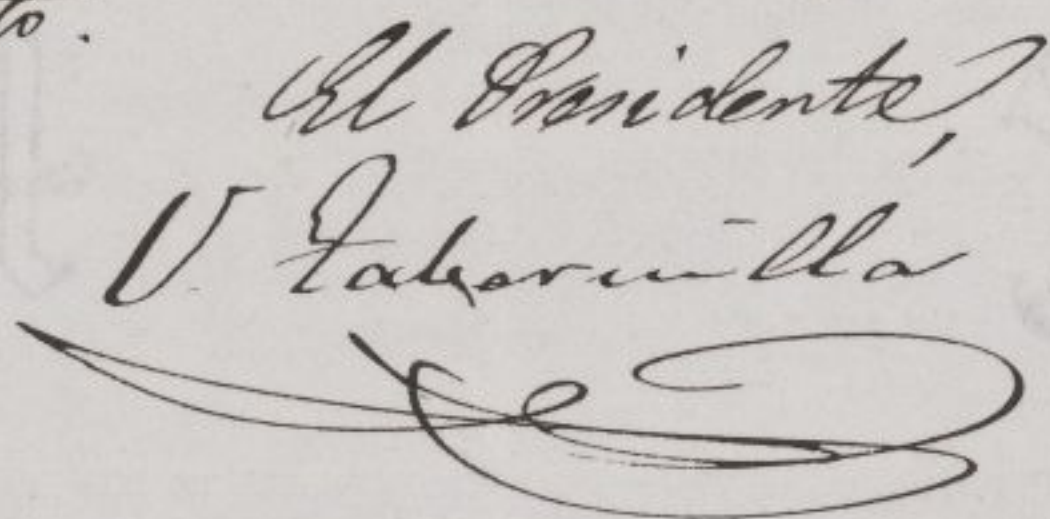 to.
El Presidente,
V. Tabernilla